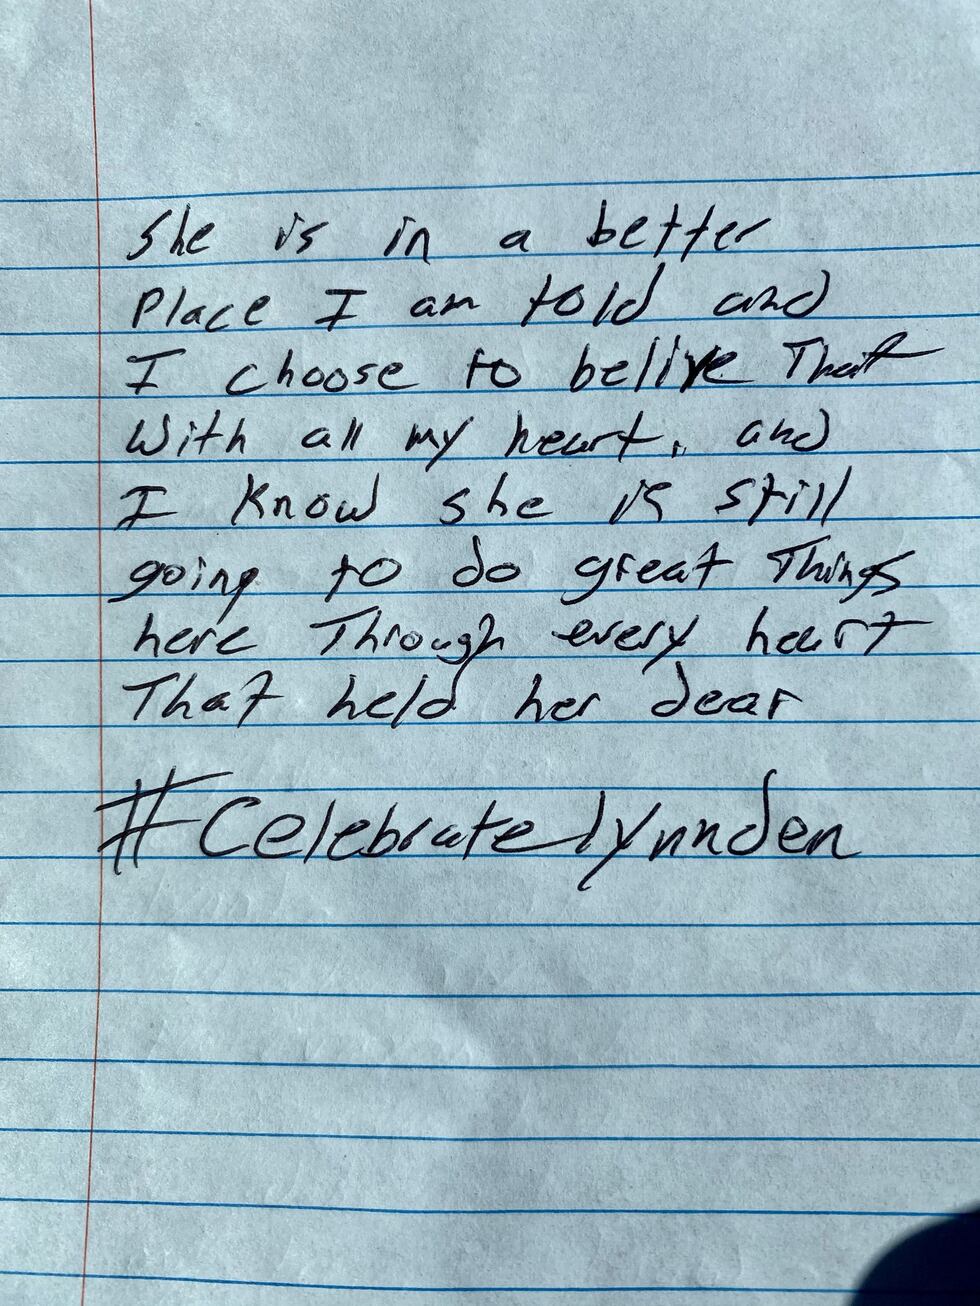 She is in a better
Place I am told and
I choose to belive That
With all my heart, and
I Know she is still
going to do great Things
here Through every heart
That held her dear
#Celebratelynnden